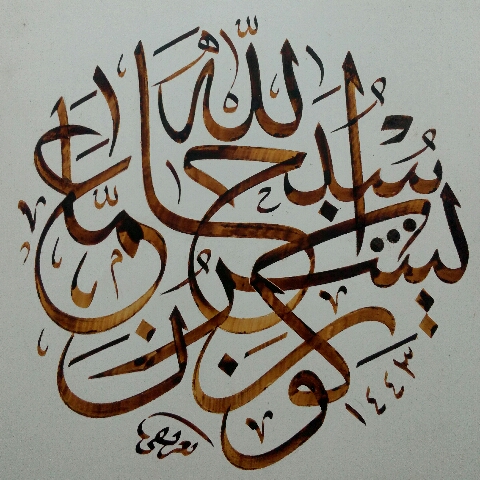 سبحان الله عما يشركون
١٤٤٣